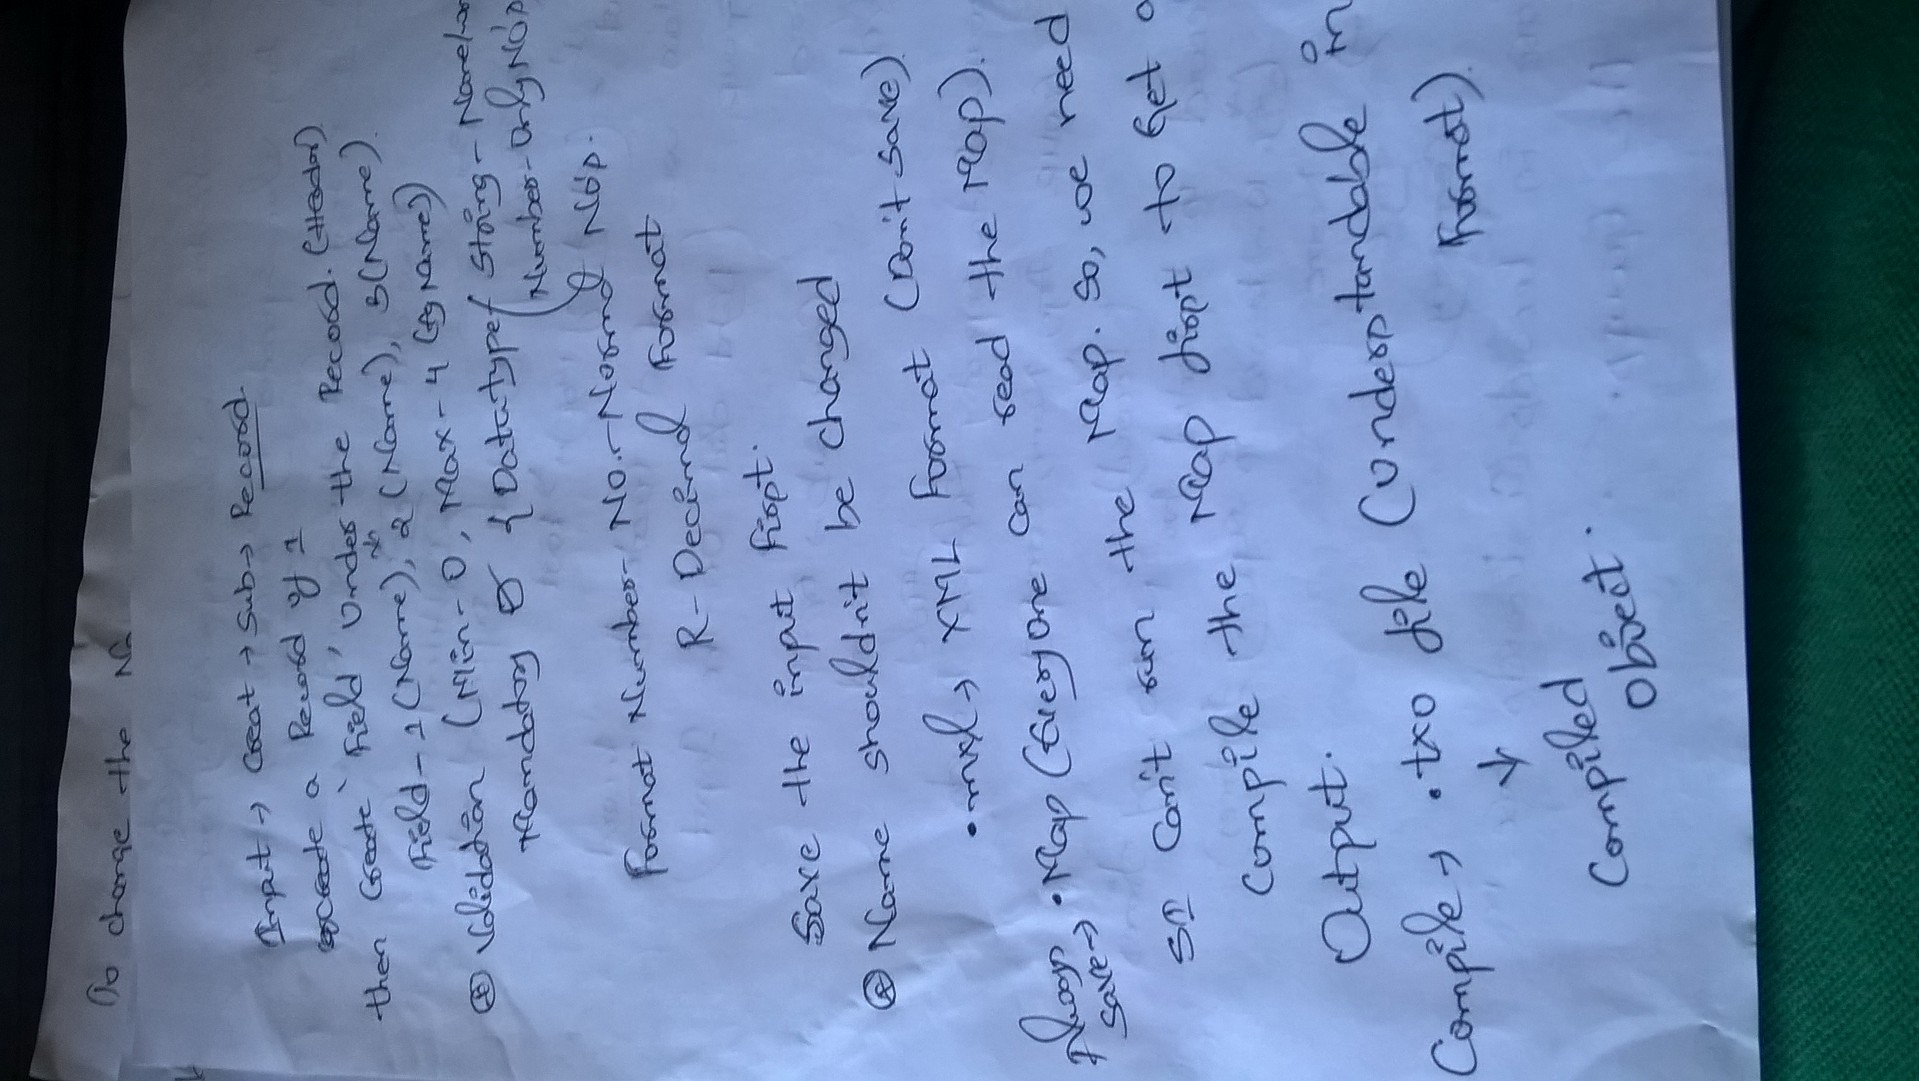 To change the
Input → Creat → Sub → Record.
create a Record of 1
then create 'Field' under the Record. (Header)
Field-1 (Name), 2 (Name), 3 (Name).
Validation (Min-0, Max-4 (eg Name))
Mandatory ☑ { Datatype { String - Name/
Number - Only No's
& No's.
Format Number - No. - Normal Format
R - Decimal Format
Save the input first.
Name shouldn't be changed
.mxl → XML Format (Don't save).
Always save → .Map (Everyone can read the Map).
SI can't run the Map. So, we need
Compile the Map first to get
Output.
Compile → .txo file (understandable in
Format).
↓
Compiled
Object.